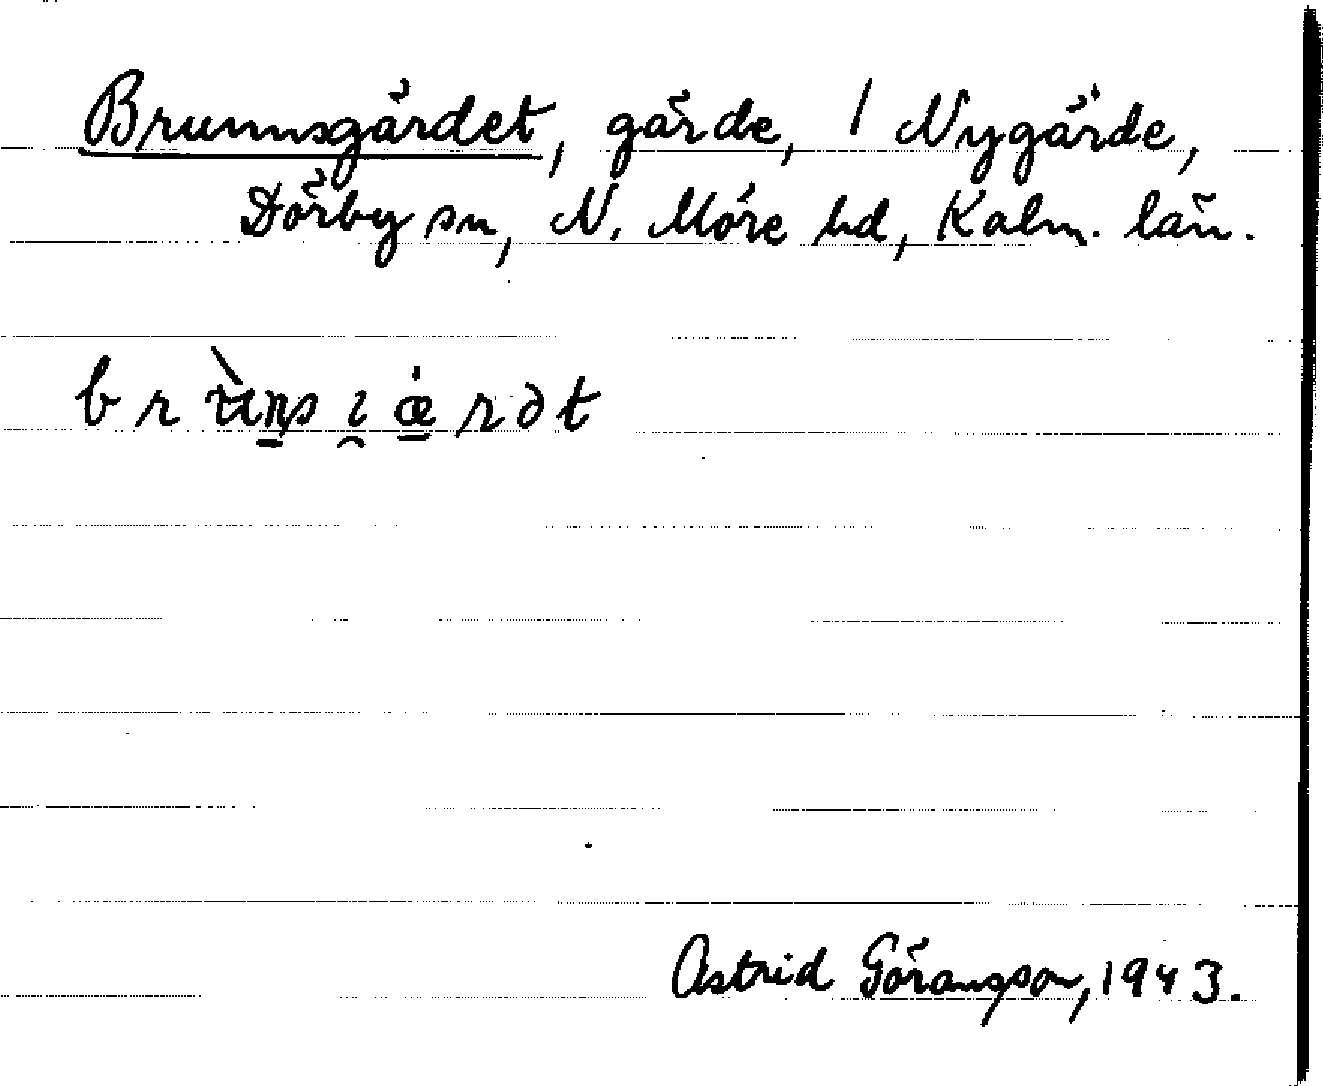 Brunnsgärdet, gärde, / Nygärde,
Dörby sn, N. Möre hd, Kalm. län.
br ùn̠s ı̯ œ̠̇ rət
Astrid Göransson, 1943.